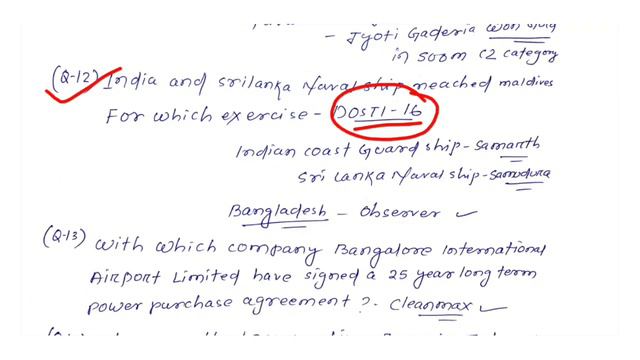 - Jyoti Gaderia won
in 500m C2 category
(Q-12) India and Srilanka Naval ship reached maldives
For which exercise - DOSTI - 16
Indian coast Guard ship - Samarth
Sri Lanka Naval ship - Samudura
Bangladesh - Observer
(Q-13) with which company Bangalore International
Airport Limited have signed a 25 year long term
power purchase agreement ? Cleanmax